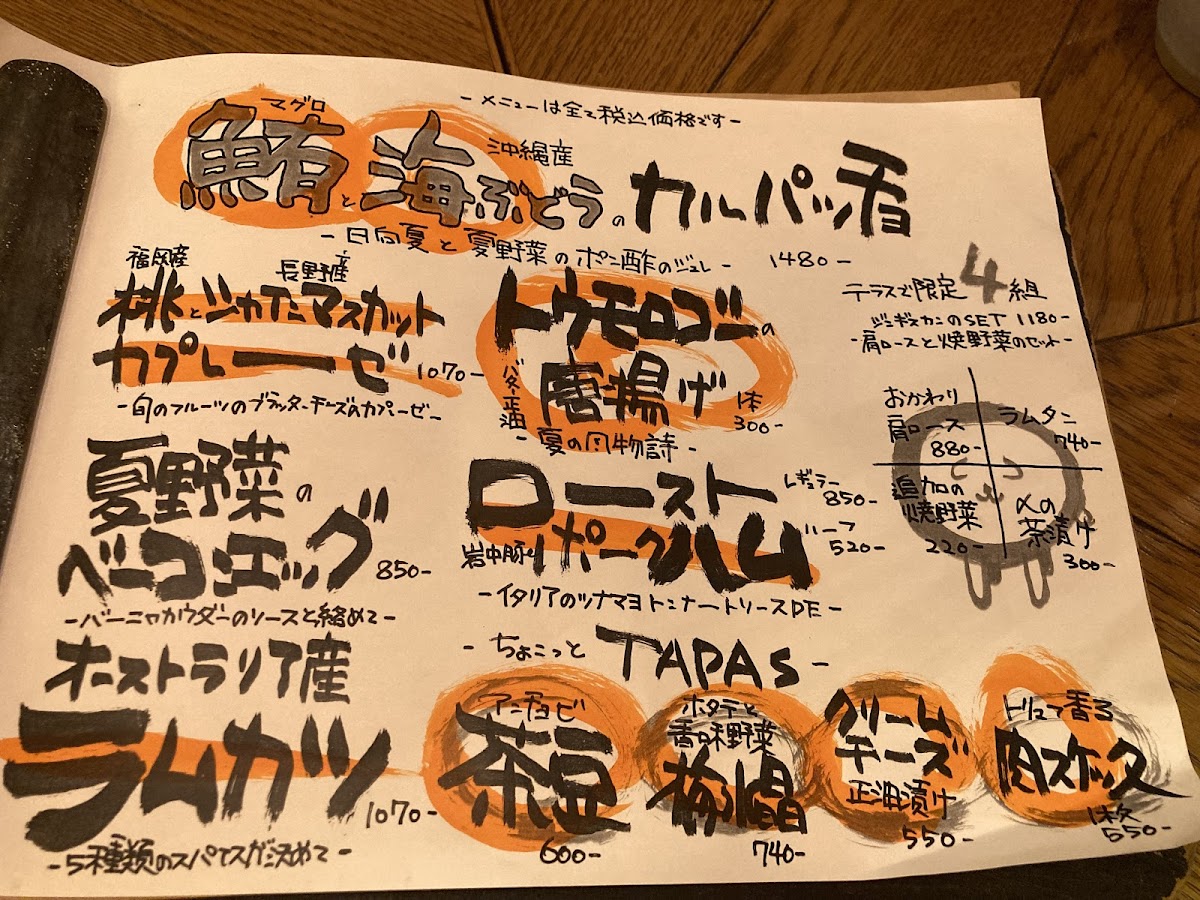 -メニューは全て税込価格です-
マグロ
沖縄産
鮪と海ぶどうのカルパッチョ
-日向夏と夏野菜のポン酢のジュレ- 1480-
福島産 長野産
桃とシャインマスカット
カプレーゼ 1070-
-旬のフルーツのブラッターチーズのカプレーゼ-
トウモロコシーの
バター正油 唐揚げ 1本 300-
-夏の風物詩-
テラスで限定4組
ジンギスカンのSET 1180-
-肩ロースと焼野菜のセット-
おかわり肩ロース 880-
ラムタン 740-
追加の焼野菜 220-
〆の茶漬け 300-
夏野菜の
ベーコンエッグ 850-
-バーニャカウダーのソースと絡めて-
ロースト
岩中豚 ポークハム
レギュラー 850-
ハーフ 520-
-イタリアのツナマヨトンナートソースDE-
オーストラリア産
ラムカツ 1070-
-5種類のスパイスが決めて-
-ちょこっと TAPAS-
アンチョビ
茶豆
600-
ホタテと
香味野菜
740-
クリーム
チーズ
正油漬け
550-
トリュフ香る
肉スケッタ
1枚
550-